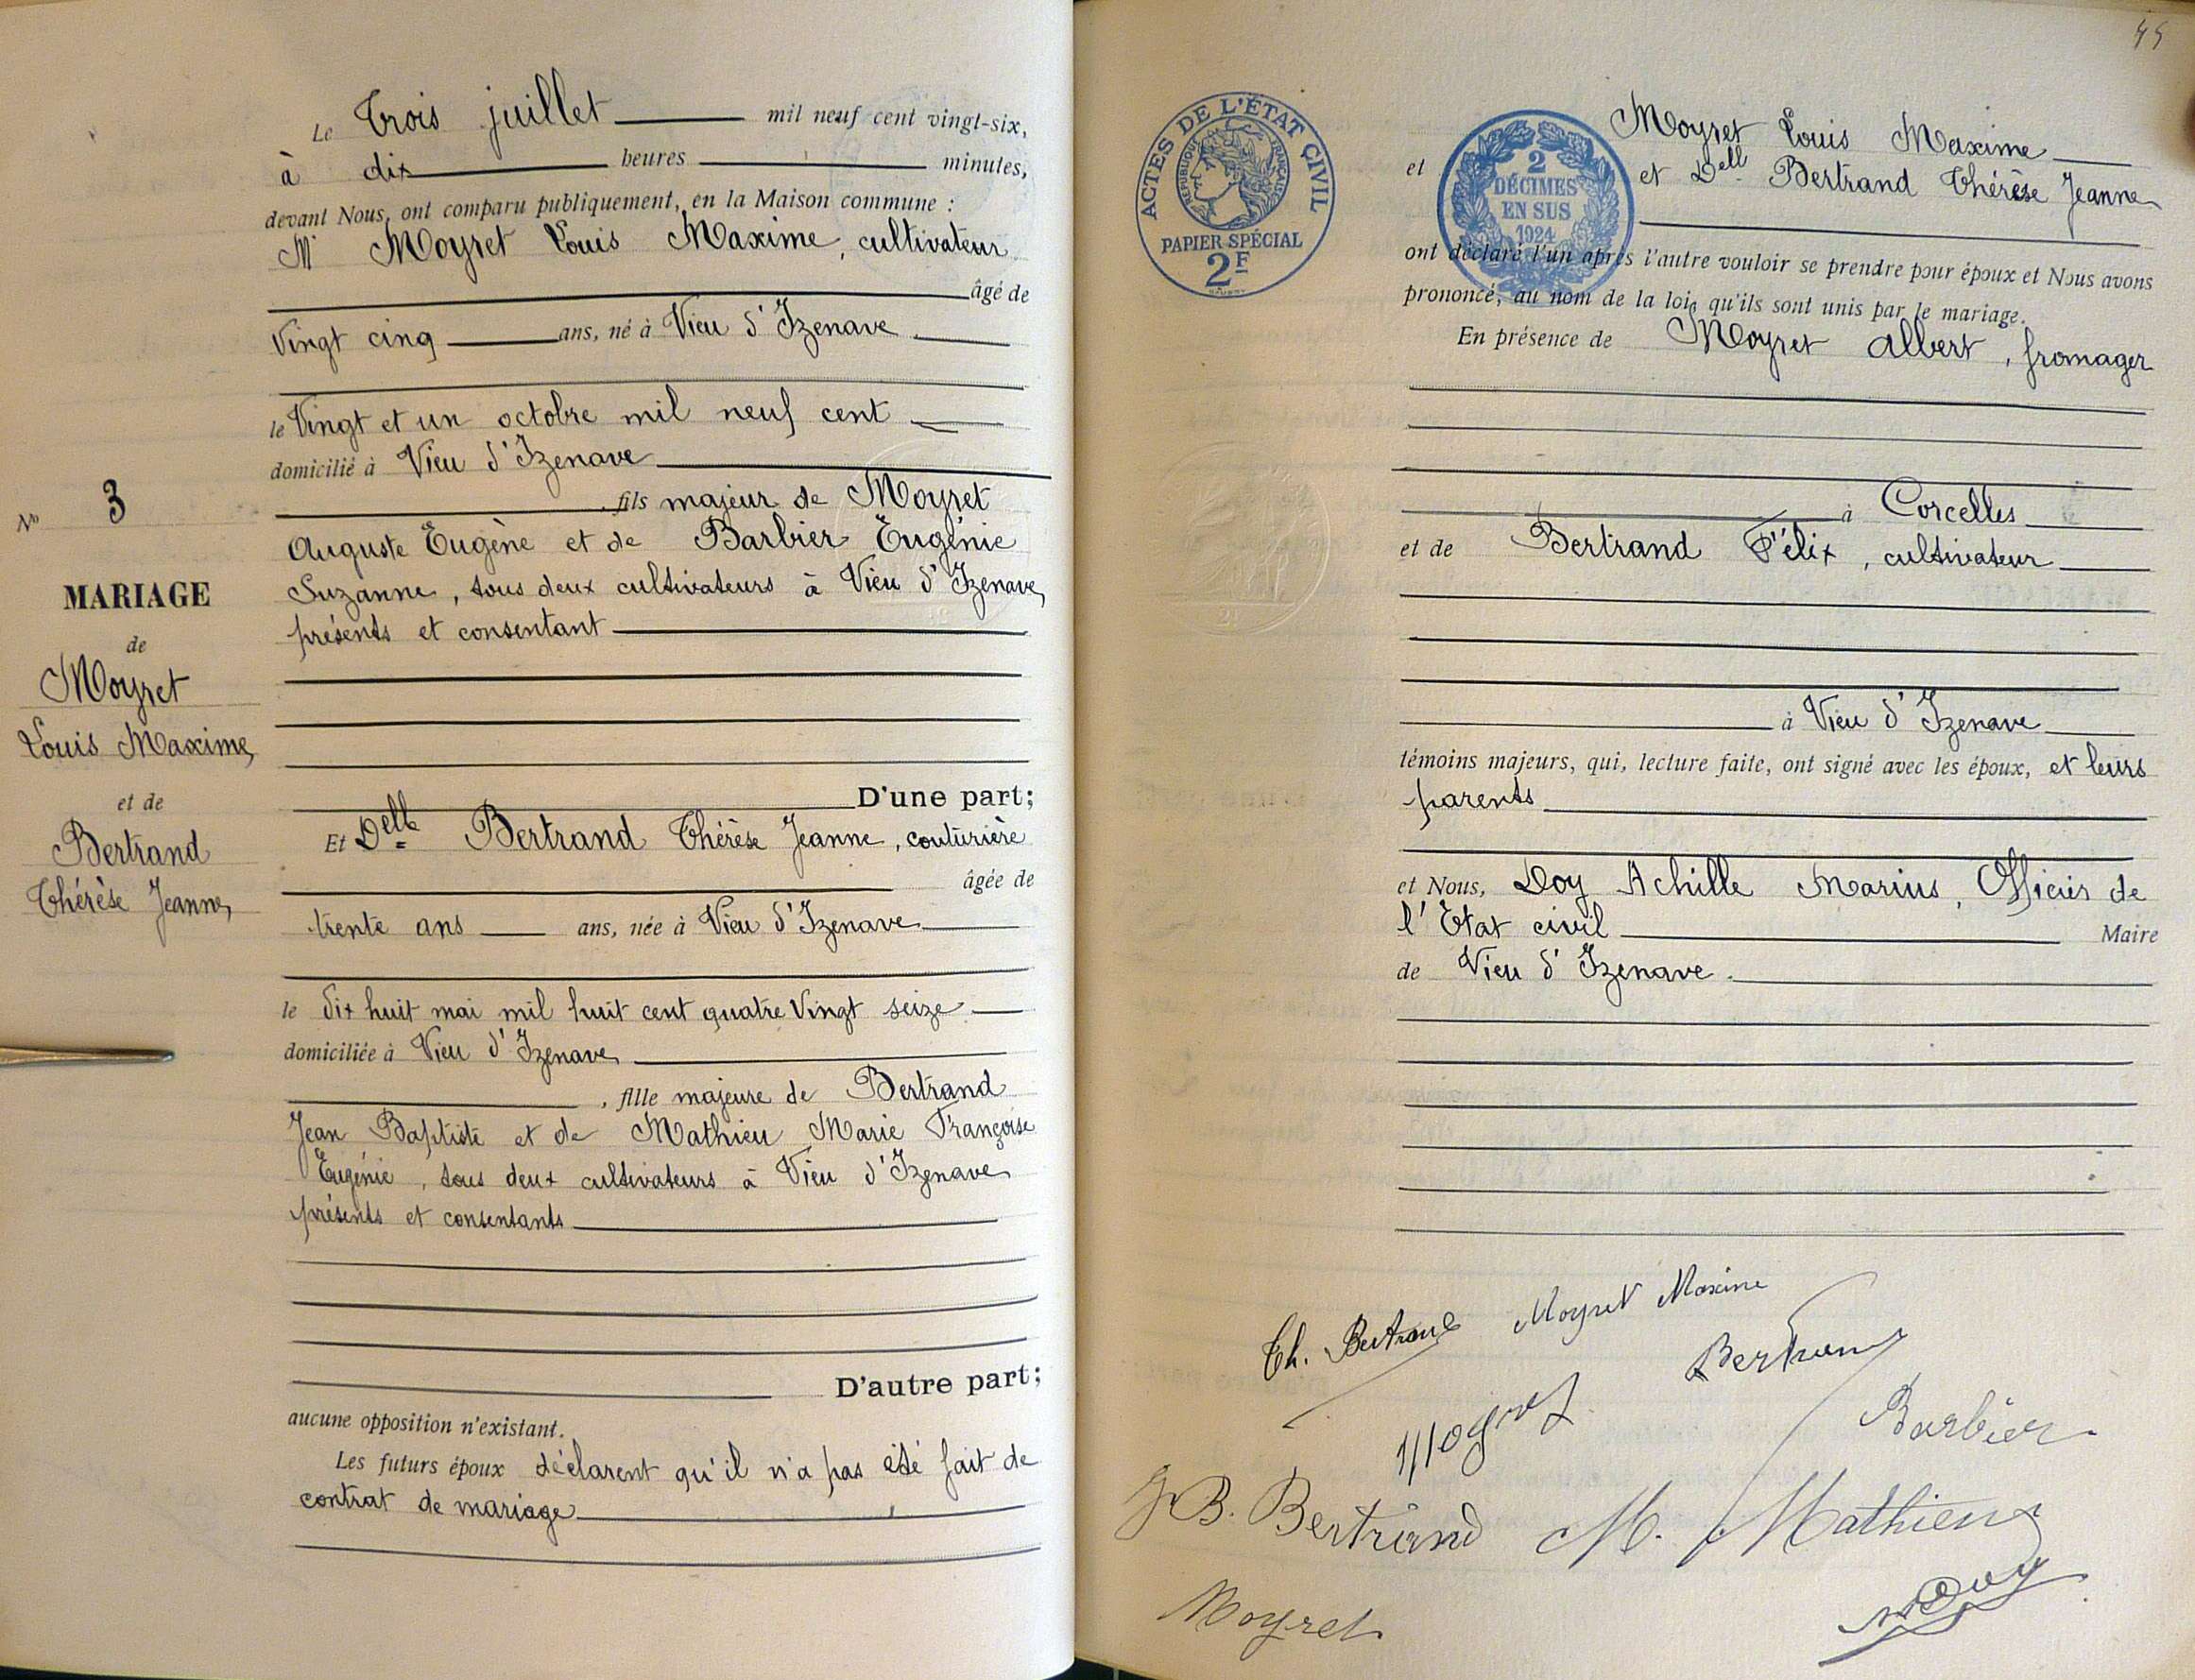 Le Trois juillet mil neuf cent vingt-six,
à dix heures minutes,
devant Nous, ont comparu publiquement, en la Maison commune :
M Moyret Louis Maxime, cultivateur
âgé de
Vingt cinq ans, né à Vieu d'Izenave
le Vingt et un octobre mil neuf cent
domicilié à Vieu d'Izenave
, fils majeur de Moyret
Auguste Eugène et de Barbier Eugénie
Suzanne, tous deux cultivateurs à Vieu d'Izenave,
présents et consentant
D'une part;
Et Delle Bertrand Thérèse Jeanne, couturière
âgée de
trente ans ans, née à Vieu d'Izenave
le dix huit mai mil huit cent quatre Vingt seize
domiciliée à Vieu d'Izenave
, fille majeure de Bertrand
Jean Baptiste et de Mathieu Marie Françoise
Eugénie, tous deux cultivateurs à Vieu d'Izenave
présents et consentants
D'autre part;
aucune opposition n'existant.
Les futurs époux déclarent qu'il n'a pas été fait de
contrat de mariage
No 3
MARIAGE
de
Moyret
Louis Maxime,
et de
Bertrand
Thérèse Jeanne,
45
ACTES DE L'ÉTAT CIVIL
RÉPUBLIQUE FRANÇAISE
PAPIER SPÉCIAL
2F
2
DÉCIMES
EN SUS
1924
et Moyret Louis Maxime
et Dell Bertrand Thérèse Jeanne
ont déclaré l'un après l'autre vouloir se prendre pour époux et Nous avons
prononcé, au nom de la loi, qu'ils sont unis par le mariage.
En présence de Moyret Albert, fromager
à Corcelles
et de Bertrand Félix, cultivateur
à Vieu d'Izenave
témoins majeurs, qui, lecture faite, ont signé avec les époux, et leurs
parents
et Nous, Doy Achille Marius, Officier de
l'Etat civil Maire
de Vieu d'Izenave.
Th. Bertrand Moyret Maxime
Bertrand
Moyret
Barbier
JB. Bertrand M. Mathieu
Moyret
Doy